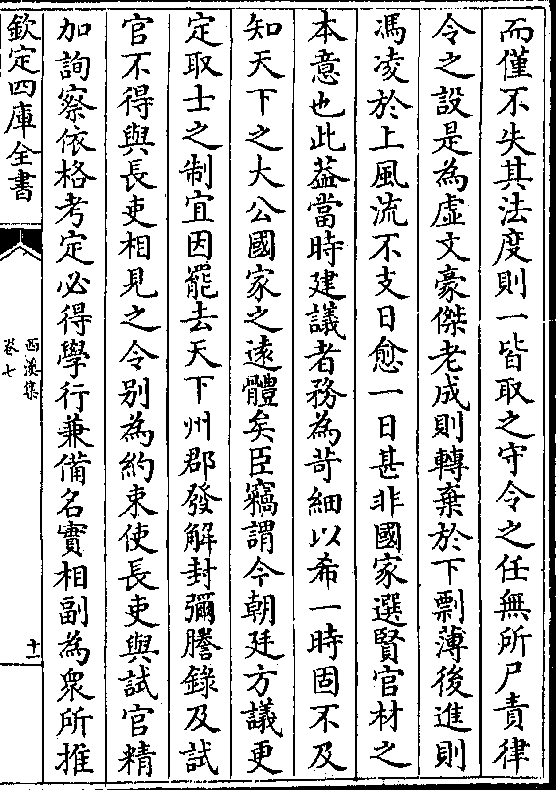 而僅不失其法度則一皆取之守令之任無所尸責律
令之設是為虛文豪傑老成則轉棄於下剽薄後進則
馮凌於上風流不支日愈一日甚非國家選賢官材之
本意也此葢當時建議者務為苛細以希一時固不及
知天下之大公國家之遠體矣臣竊謂今朝廷方議更
定取士之制宜因罷去天下州郡發解封彌謄錄及試
官不得與長吏相見之令别為約束使長吏與試官精
加詢察依格考定必得學行兼備名實相副為衆所推
欽定四庫全書
西溪集
卷七
十一